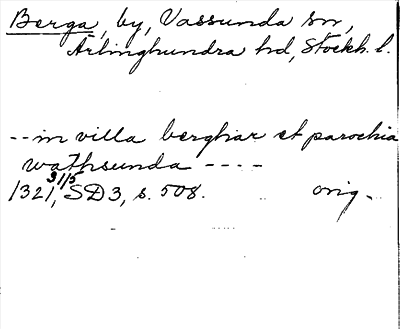 Berga, by, Vassunda sn,
Ärlinghundra hd, Stockh. l.
-- in villa berghar et parochia
wathsunda ----
1321, 31/5 SD3, s. 508. orig.